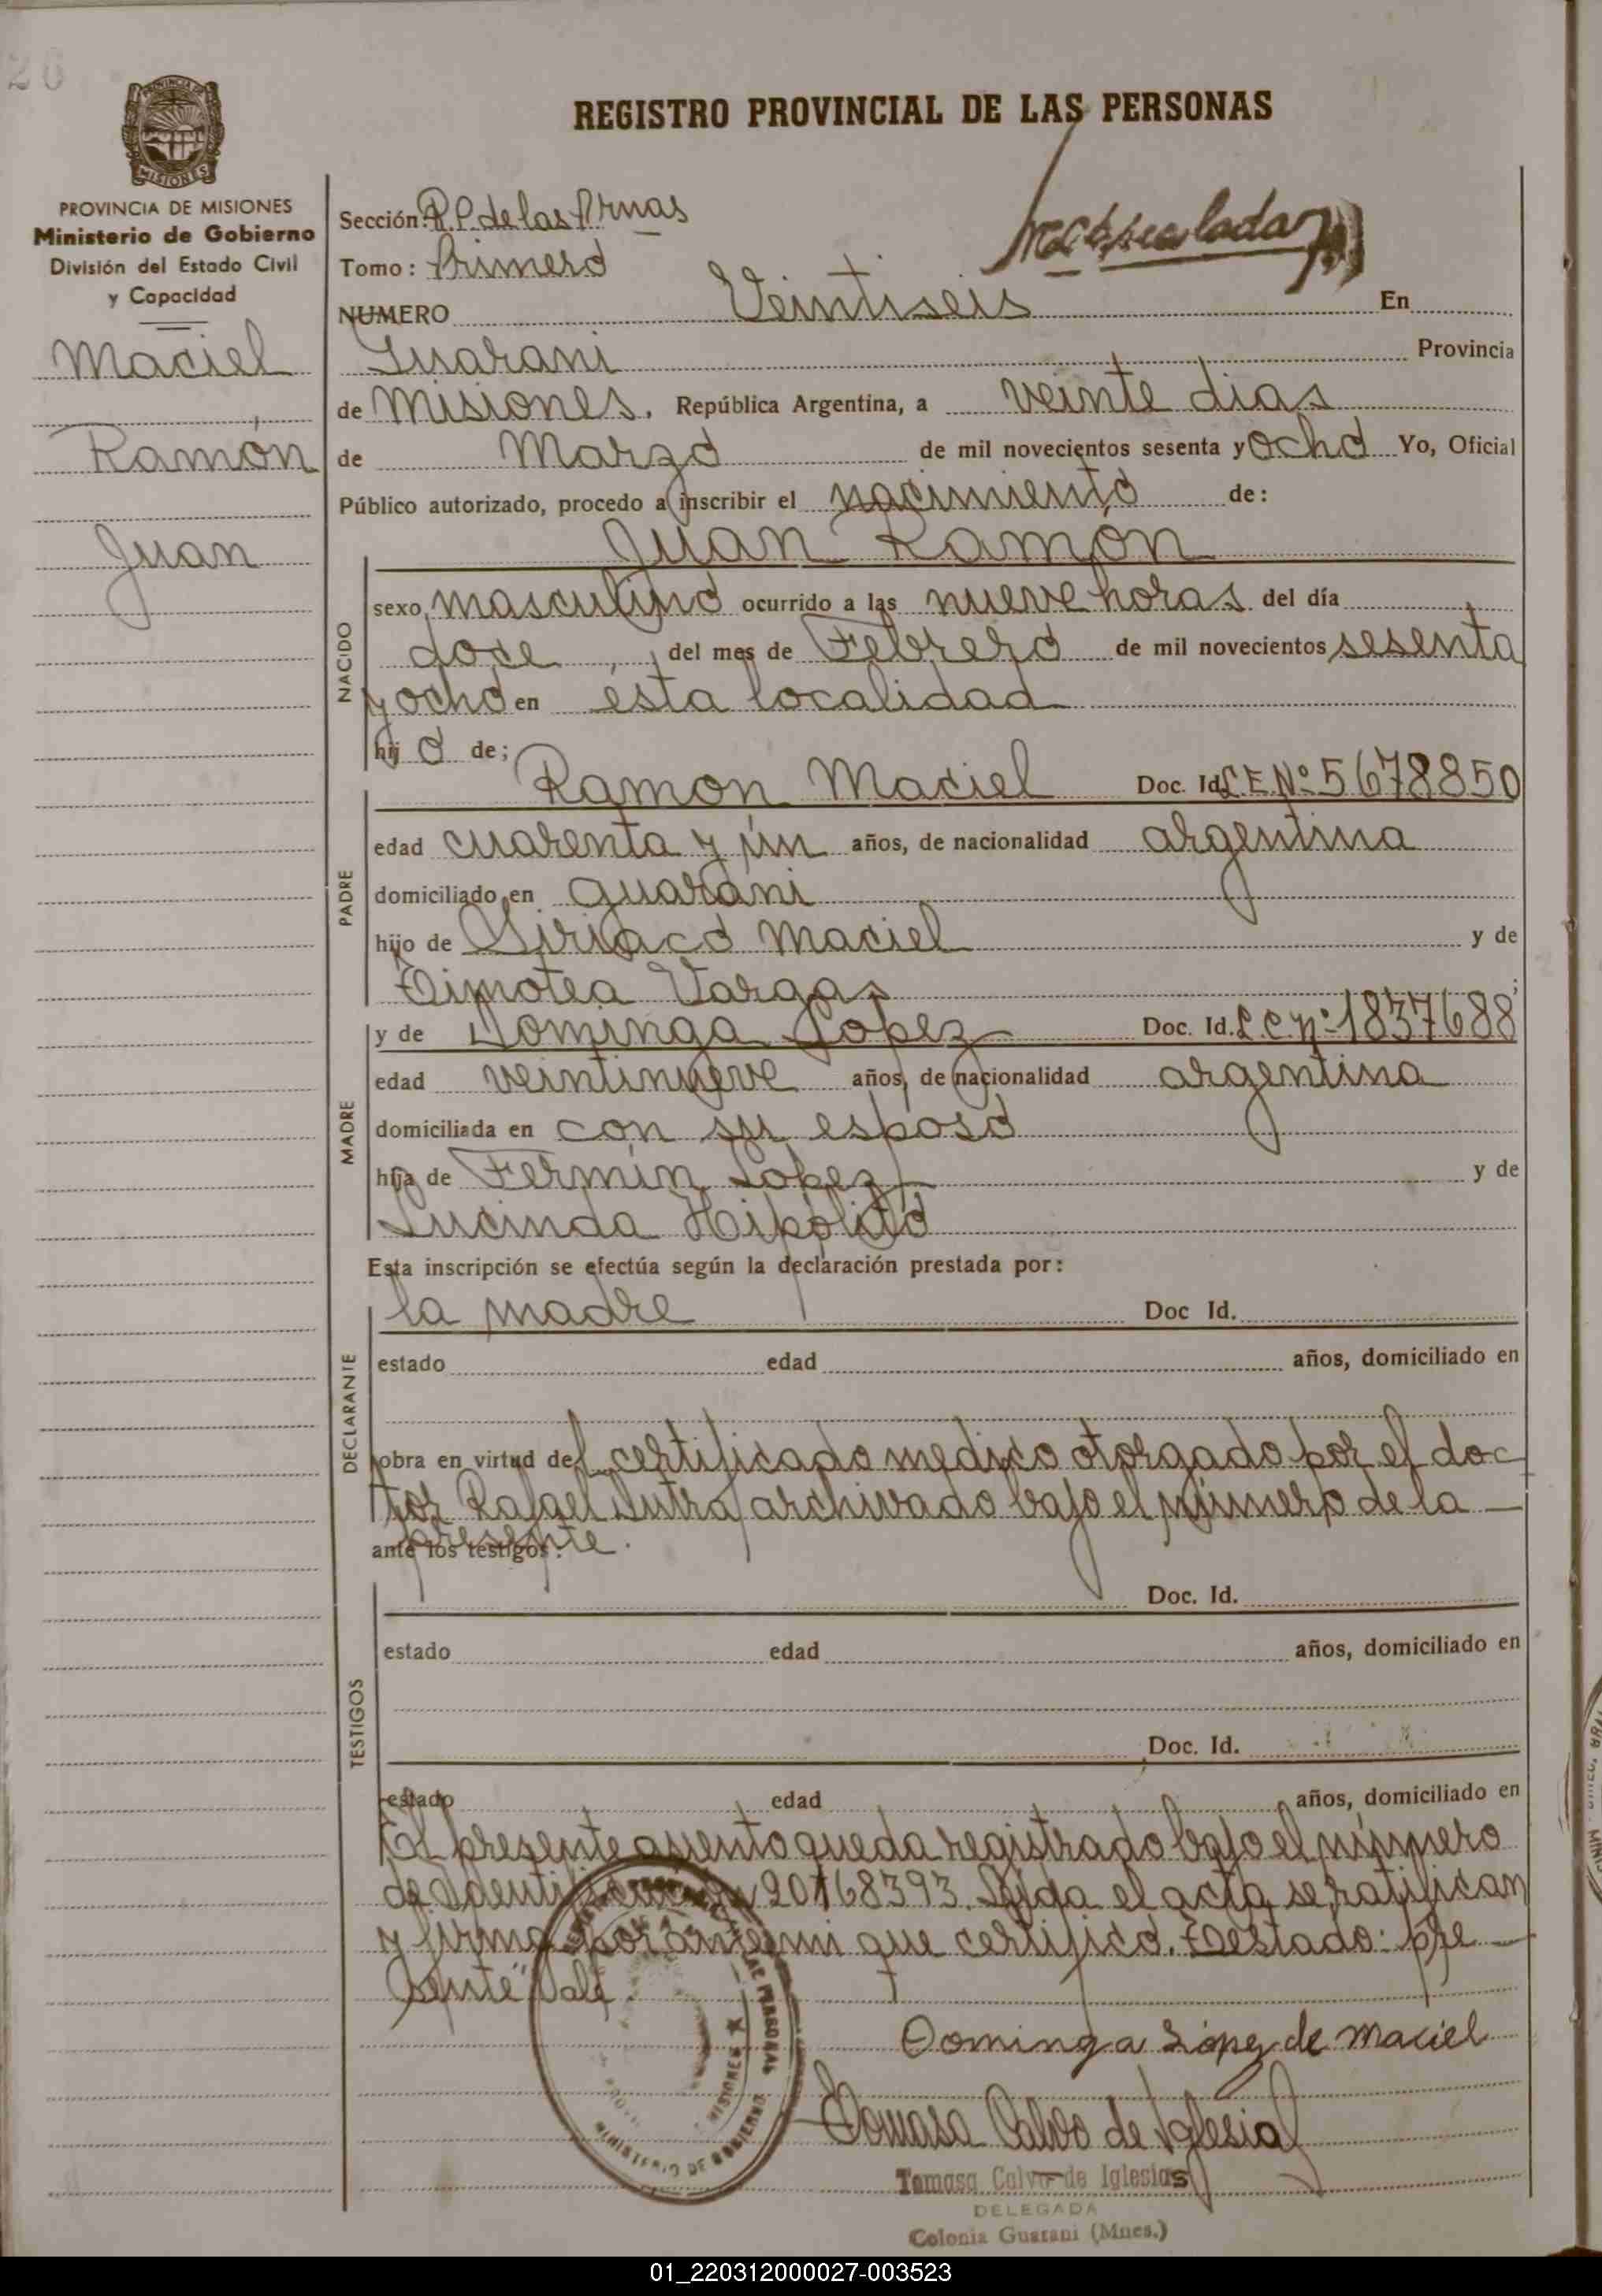 20
REGISTRO PROVINCIAL DE LAS PERSONAS
PROVINCIA DE
MISIONES
PROVINCIA DE MISIONES
Ministerio de Gobierno
División del Estado Civil
y Capacidad
Maciel
Ramón
Juan
Sección: R.P. de las Prnas
Tomo: Primero
NUMERO Veintiseis En
Guarani Provincia
de Misiones. República Argentina, a veinte dias
de Marzo de mil novecientos sesenta y ocho Yo, Oficial
Público autorizado, procedo a inscribir el nacimiento de:
Juan Ramón
NACIDO
sexo masculino ocurrido a las nueve horas del día
doce del mes de Febrero de mil novecientos sesenta
y ocho en ésta localidad
hij o de;
PADRE
Ramon Maciel Doc. Id. L.E. Nº 5678850
edad cuarenta y ún años, de nacionalidad argentina
domiciliado en guarani
hijo de Siriaco Maciel y de
Timotea Vargas ;
MADRE
y de Dominga Lopez Doc. Id. L.C. nº 1837688
edad veintinueve años, de nacionalidad argentina
domiciliada en con su esposo
hija de Fermín Lopez y de
Lucinda Hipólito
Esta inscripción se efectúa según la declaración prestada por:
DECLARANTE
la madre Doc Id.
estado edad años, domiciliado en
obra en virtud del certificado medico otorgado por el doc
tor Rafael Dutra archivado bajo el número de la
presente.
ante los testigos:
TESTIGOS
Doc. Id.
estado edad años, domiciliado en
Doc. Id.
estado edad años, domiciliado en
El presente asiento queda registrado bajo el número
de Identificación 20168393. Leida el acta se ratifican
y firma por ante mi que certifico. Testado: "pre
sente" Vale.
Dominga López de Maciel
Tomasa Calvo de Iglesias
Tomasa Calvo de Iglesias
DELEGADA
Colonia Guarani (Mnes.)
MISIONES
MINISTERIO DE GOBIERNO
01_220312000027-003523